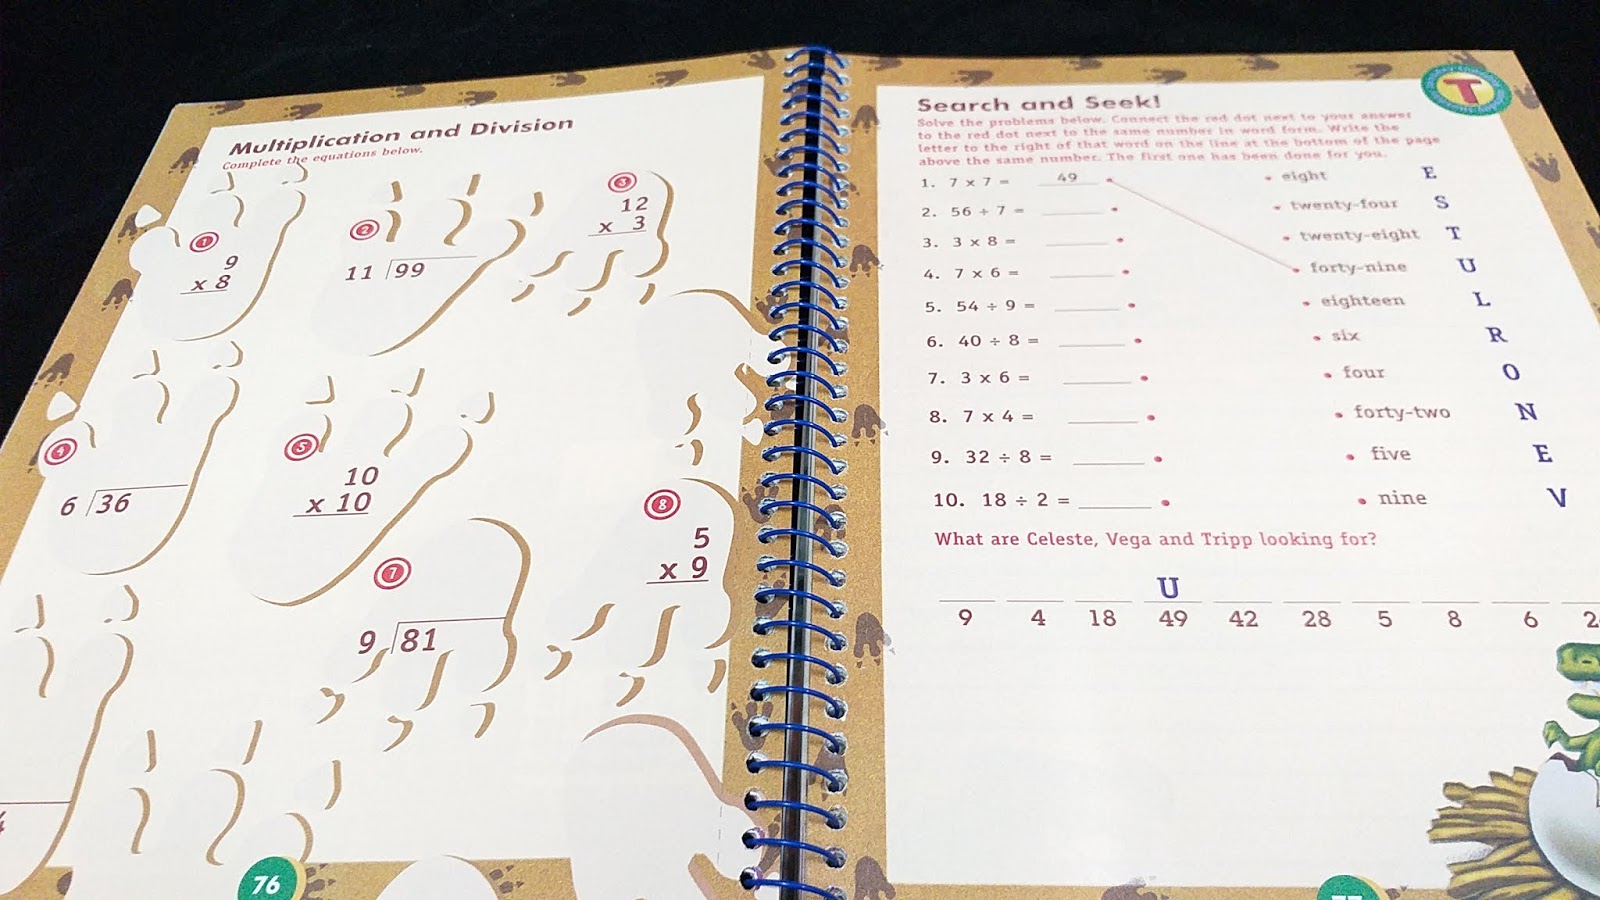 Multiplication and Division
Complete the equations below.
1
9
x 8
2
11 99
3
12
x 3
4
6 36
5
10
x 10
7
9 81
8
5
x 9
76
T
Search and Seek!
Solve the problems below. Connect the red dot next to your answer
to the red dot next to the same number in word form. Write the
letter to the right of that word on the line at the bottom of the page
above the same number. The first one has been done for you.
1. 7 x 7 = 49 eight E
2. 56 ÷ 7 = twenty-four S
3. 3 x 8 = twenty-eight T
4. 7 x 6 = forty-nine U
5. 54 ÷ 9 = eighteen L
6. 40 ÷ 8 = six R
7. 3 x 6 = four O
8. 7 x 4 = forty-two N
9. 32 ÷ 8 = five E
10. 18 ÷ 2 = nine V
What are Celeste, Vega and Tripp looking for?
U
9 4 18 49 42 28 5 8 6